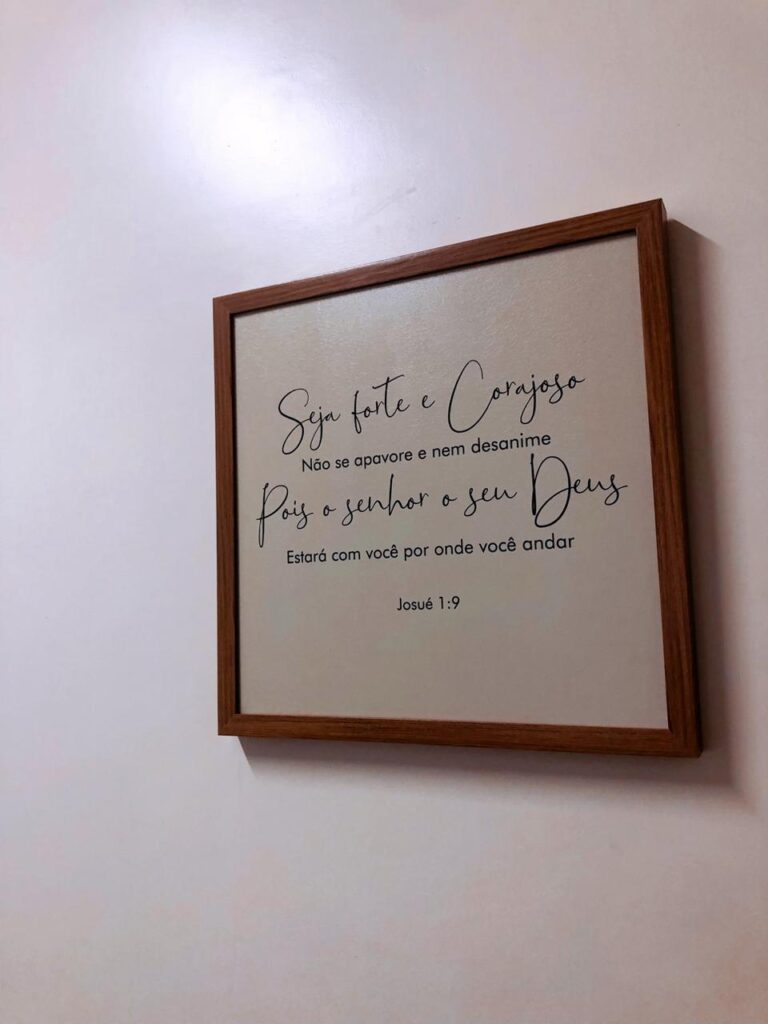 Seja forte e Corajoso
Não se apavore e nem desanime
Pois o senhor o seu Deus
Estará com você por onde você andar
Josué 1:9